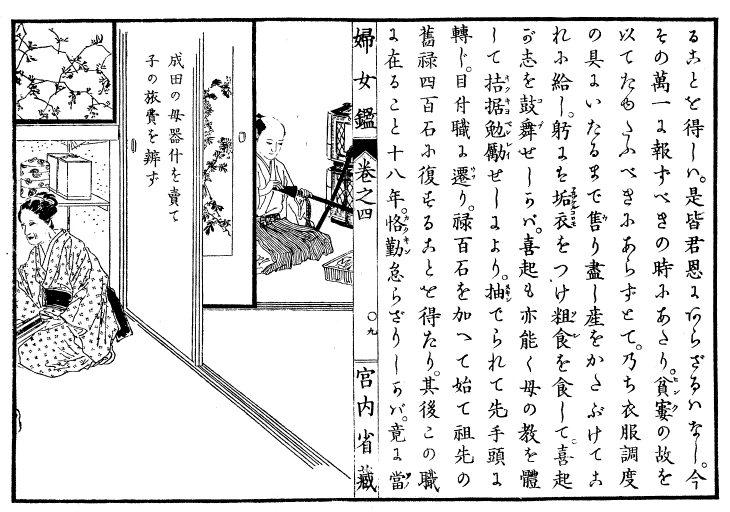 るヿとを得しハ。是皆君恩にあらざるハなし。今
その萬一に報ずべきの時にあたり。貧窶の故を
以てためらふべきにあらずとて。乃ち衣服調度
の具にいたるまで售り盡し産をかたぶけてこ
れに給し。躬にハ垢衣をつけ粗食を食して。喜起
が志を鼓舞せしかバ。喜起も亦能く母の教を體
して拮据勉勵せしにより。抽でられて先手頭に
轉じ。目付職に遷り。禄百石を加へて始て祖先の
舊禄四百石に復するヿとを得たり。其後この職
に在ること十八年。恪勤怠らざりしかバ。竟に當
婦女鑑 卷之四 〇九 宮内省藏
成田の母器什を賣て
子の旅費を辨ず